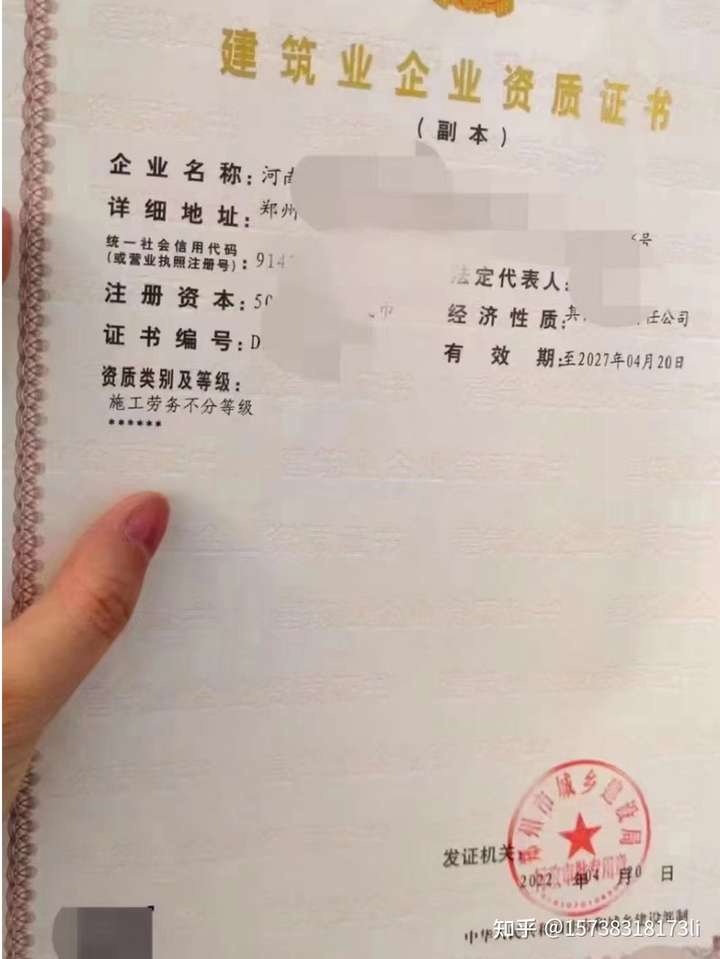 建筑业企业资质证书
(副本)
企业名称:河南
详细地址:郑州
号
统一社会信用代码
(或营业执照注册号):914
法定代表人:
注册资本:50
币
经济性质:其 任公司
证书编号:D
有效期:至2027年04月20日
资质类别及等级:
施工劳务不分等级
******
郑州市城乡建设局
发证机关:
2022年04月20日
中华人民共和国住房和城乡建设部制
知乎 @15738318173li